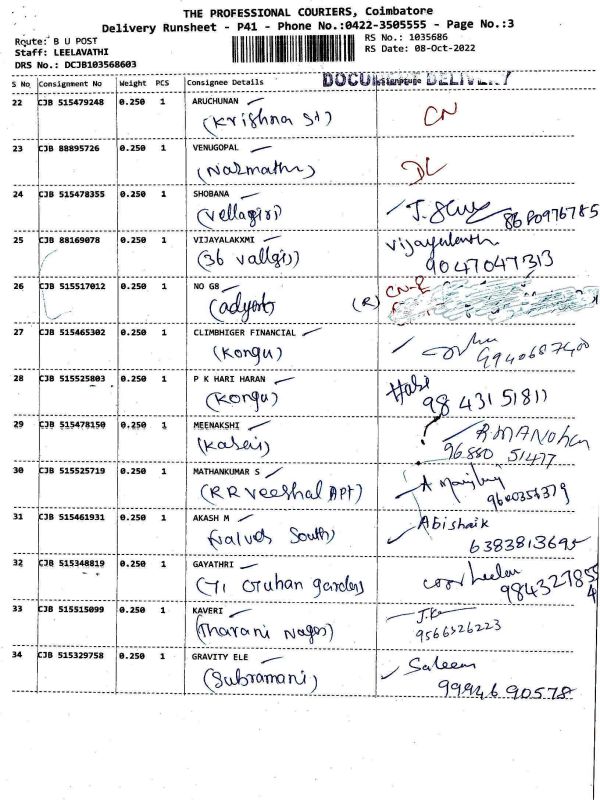 THE PROFESSIONAL COURIERS, Coimbatore
Delivery Runsheet - P41 - Phone No.:0422-3505555 - Page No.:3
Route: B U POST
Staff: LEELAVATHI
DRS No.: DCJB103568603
RS No.: 1035686
RS Date: 08-Oct-2022
S No Consignment No Weight PCS Consignee Details Signature
DOCUMENT DELIVERY
22 CJB 515479248 0.250 1 ARUCHUNAN
(Krishna St) CN
23 CJB 88895726 0.250 1 VENUGOPAL
DL
24 CJB 515478355 0.250 1 SHOBANA
(vellagiri)
25 CJB 88169078 0.250 1 VIJAYALAKXMI
(36 vallgiri) 9047047313
26 CJB 515517012 0.250 1 NO G8
(R)
27 CJB 515465302 0.250 1 CLIMBHIGER FINANCIAL
(Kongu) 9940687400
28 CJB 515525803 0.250 1 P K HARI HARAN
(Kongu) 98 431 51811
29 CJB 515478150 0.250 1 MEENAKSHI
R.MANOhar
96880 51477
30 CJB 515525719 0.250 1 MATHANKUMAR S
(RR veeshal APT)
31 CJB 515461931 0.250 1 AKASH M
South) Abishaik
6383813695
32 CJB 515348819 0.250 1 GAYATHRI
(71 Guhan garden)
33 CJB 515515099 0.250 1 KAVERI
(Tharani Nagar) 9566526223
34 CJB 515329758 0.250 1 GRAVITY ELE
(Subramani) Saleem
9994690578